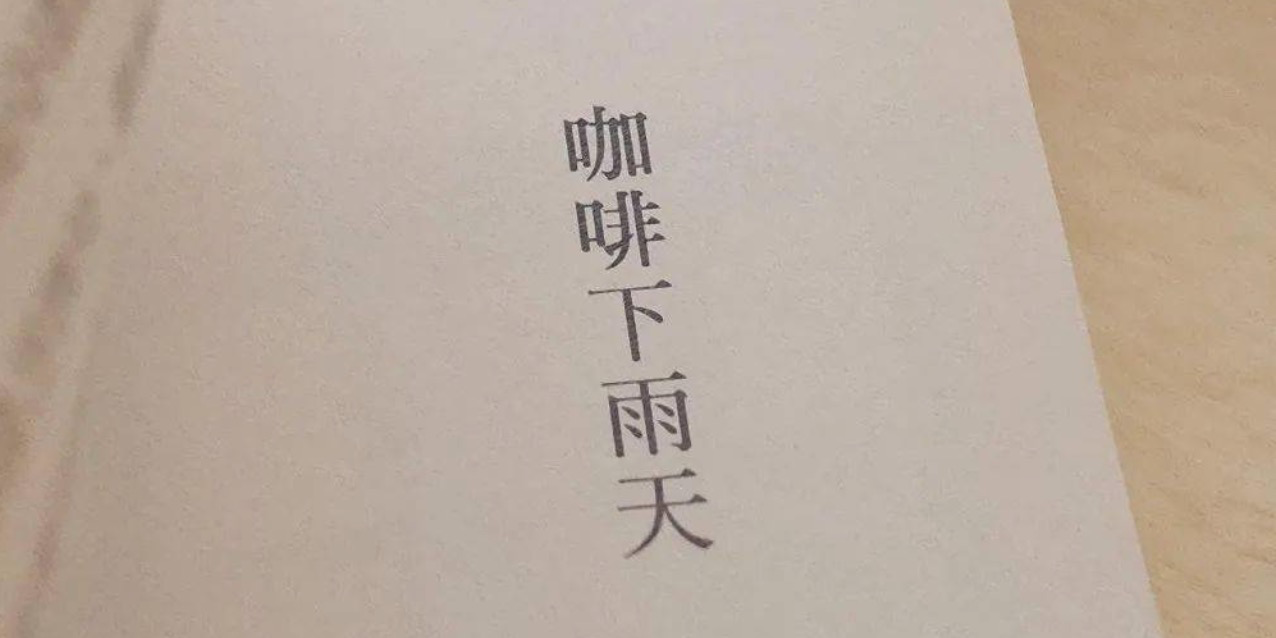 咖啡下雨天